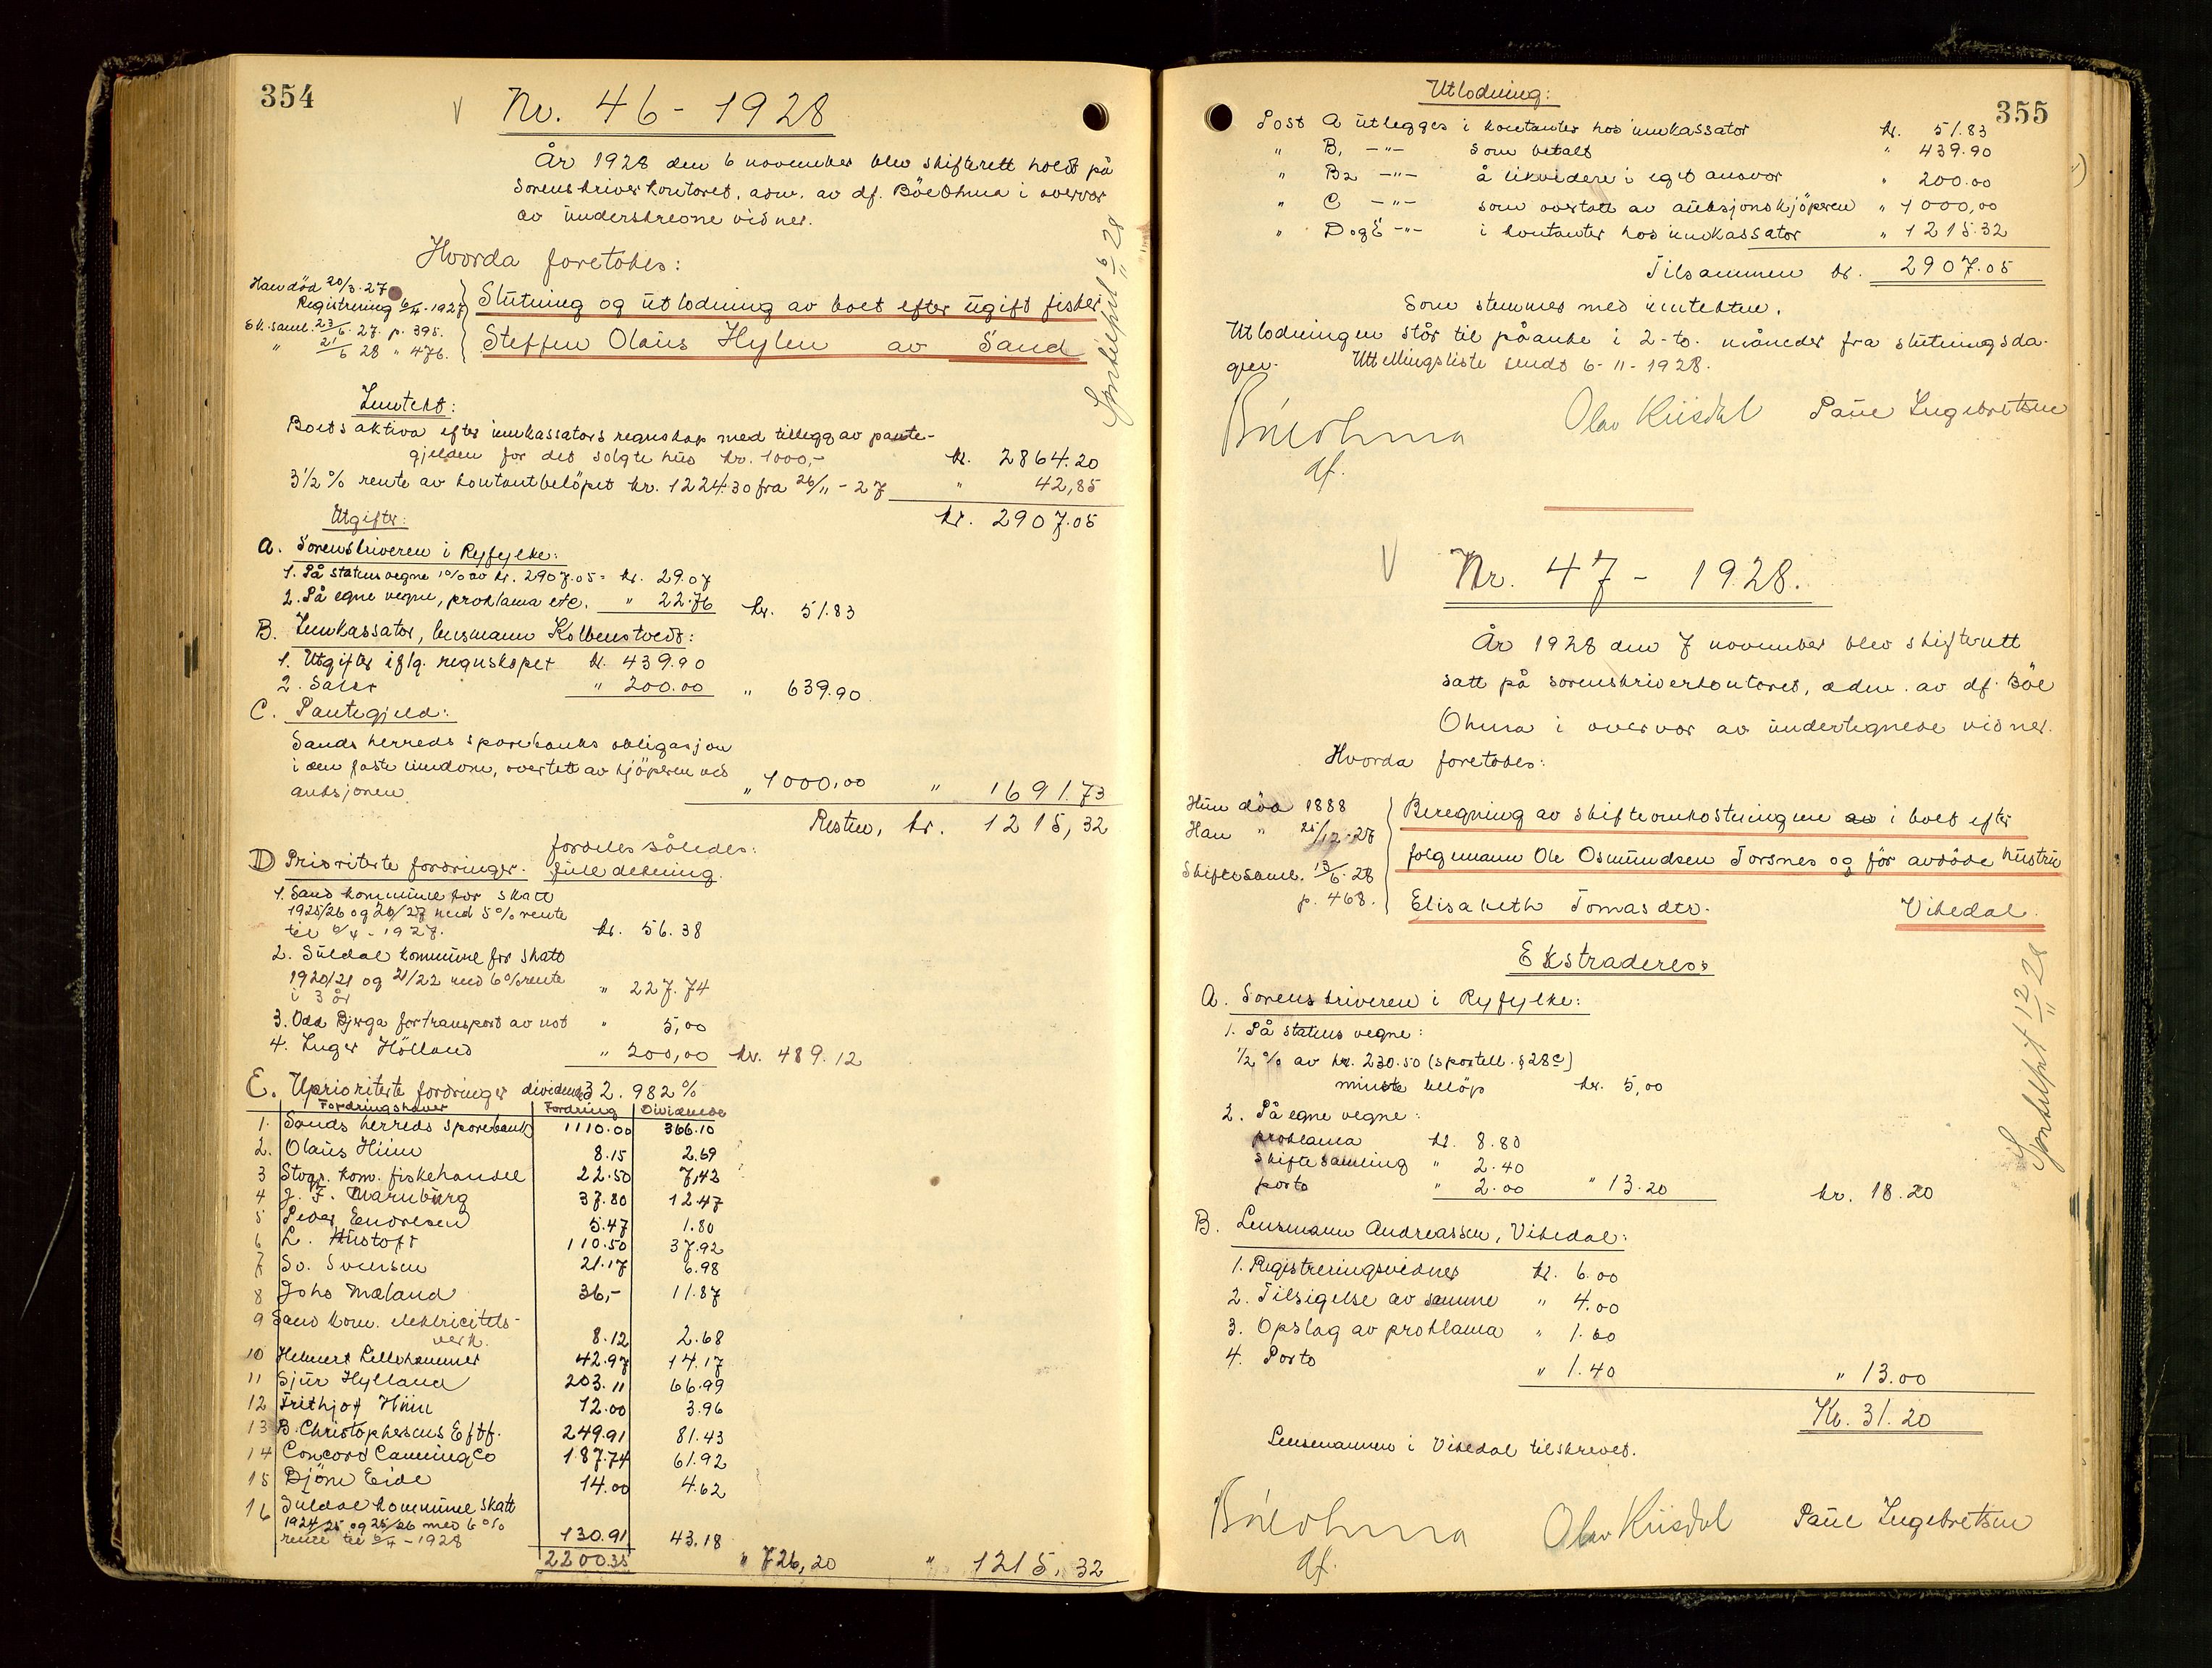 354
Nr. 46 - 1928
År 1928 den 6 november blev skifterett holdt på
sorenskriverkontoret, adm. av df. Böe Ohma i overvær
av underskrevne vidner.
Hvorda foretokes:
Han död 20/3-27
Registrering 6/4-1927
Sk.saml. 23/6-27. p. 395.
" 21/6 28 " 476.
Slutning og utlodning av boet efter ugift fisker
Steffen Olaus Hylen av Sand
Inntekt:
Boets aktiva efter innkassators regnskap med tillegg av pante-
gjelden for det solgte hus kr. 1000,- kr. 2864.20
3 1/2 % rente av kontantbelöpet kr. 1224.30 fra 26/11-27 " 42,85
kr. 2907.05
Utgifter:
A. Sorenskriveren i Ryfylke:
1. På statens vegne 1% av kr. 2907.05 = kr. 29.07
2. På egne vegne, proklama etc. " 22.76 kr. 51.83
B. Innkassator, lensmann Kolbenstvedt:
1. Utgifter iflg. regnskapet kr. 439.90
2. Salær " 200.00 " 639.90
C. Pantegjeld:
Sands herreds sparebanks obligasjon
i den faste eiendom, overtatt av kjöperen ved
auksjonen " 1000,00 " 1691.73
Resten, kr. 1215,32
fordeles således:
D Prioriterte fordringer. full dekning.
1. Sand kommune for skatt
1925/26 og 26/27 med 5% rente
til 6/4-1927. kr. 56.38
2. Suldal kommune for skatt
1920/21 og 21/22 med 6% rente
i 3 år " 227.74
3. Odd Bjerga for transport av not " 5,00
4. Inger Hölland " 200,00 kr. 489.12
E. Uprioriterte fordringer dividende 32.982%
Fordringshaver Fordring Dividende
1. Sands herreds sparebank 1110.00 366.10
2. Olaus Hiim 8.15 2.69
3 Stvgr. kom. fiskehandel 22.50 7,43
4 J. F. Marnburg 37.80 12.47
5 Peder Endresen 5.47 1.80
6 L. Hustoft 110.50 37.92
7 Sv. Svensen 21.17 6.98
8 Johs Mæland 36,- 11.87
9 Sand kom. elektricitets-
verk. 8.12 2.68
10 Helmert Lillehammer 42.97 14.17
11 Sjur Hylland 203.11 66.99
12 Frithjof Hiim 12.00 3.96
13 B. Christophersens Eftf. 249.91 81.43
14 Concord Canning Co 187.74 61.92
15 Björn Eide 14.00 4.62
16 Suldal kommune skatt
1924/25 og 25/26 med 6%
rente til 6/4-1928 130.91 43.18
2200.35 " 726,20 " 1215,32
355
Utlodning:
Post A utlegges i kontanter hos innkassator kr. 51.83
" B1 -"- som betalt " 439.90
" B2 -"- å likvidere i eget ansvar " 200.00
" C -"- som overtatt av auksjonskjöperen " 1000,00
" D og E -"- i kontanter hos innkassator " 1215.32
Tilsammen kr. 2907.05
Som stemmer med inntekten.
Utlodningen står til påanke i 2-to. måneder fra slutningsda-
gen. Uttellingsliste sendt 6-11-1928.
Böe Ohma
df.
Olav Kiisdal Paul Ingebretsen
Nr. 47 - 1928.
År 1928 den 7 november blev skifterett
satt på sorenskriverkontoret, adm. av df. Böe
Ohma i overvær av undertegnede vidner.
Hvorda foretokes:
Hun död 1888
Han " 25/12-27
Skiftesaml. 13/6-28
p. 468.
Beregning av skifteomkostningene av i boet efter
folgmann Ole Osmundsen Torsnes og för avdöde hustru
Elisabeth Tomasdtr. Vikedal.
Ekstraderes
A. Sorenskriveren i Ryfylke:
1. På statens vegne:
1/2 % av kr. 230.50 (sportell. § 28c)
minste belöp kr. 5,00
2. På egne vegne:
proklama kr. 8.80
Skiftesamling " 2.40
porto " 2.00 " 13.20 kr. 18.20
B. Lensmann Andreassen, Vikedal:
1. Registreringsvidner kr. 6.00
2. Tilsigelse av samme " 4.00
3. Opslag av proklama " 1.60
4. Porto " 1.40 " 13.00
Kr. 31.20
Lensmannen i Vikedal tilskrevet.
Böe Ohma
df.
Olav Kiisdal Paul Ingebretsen